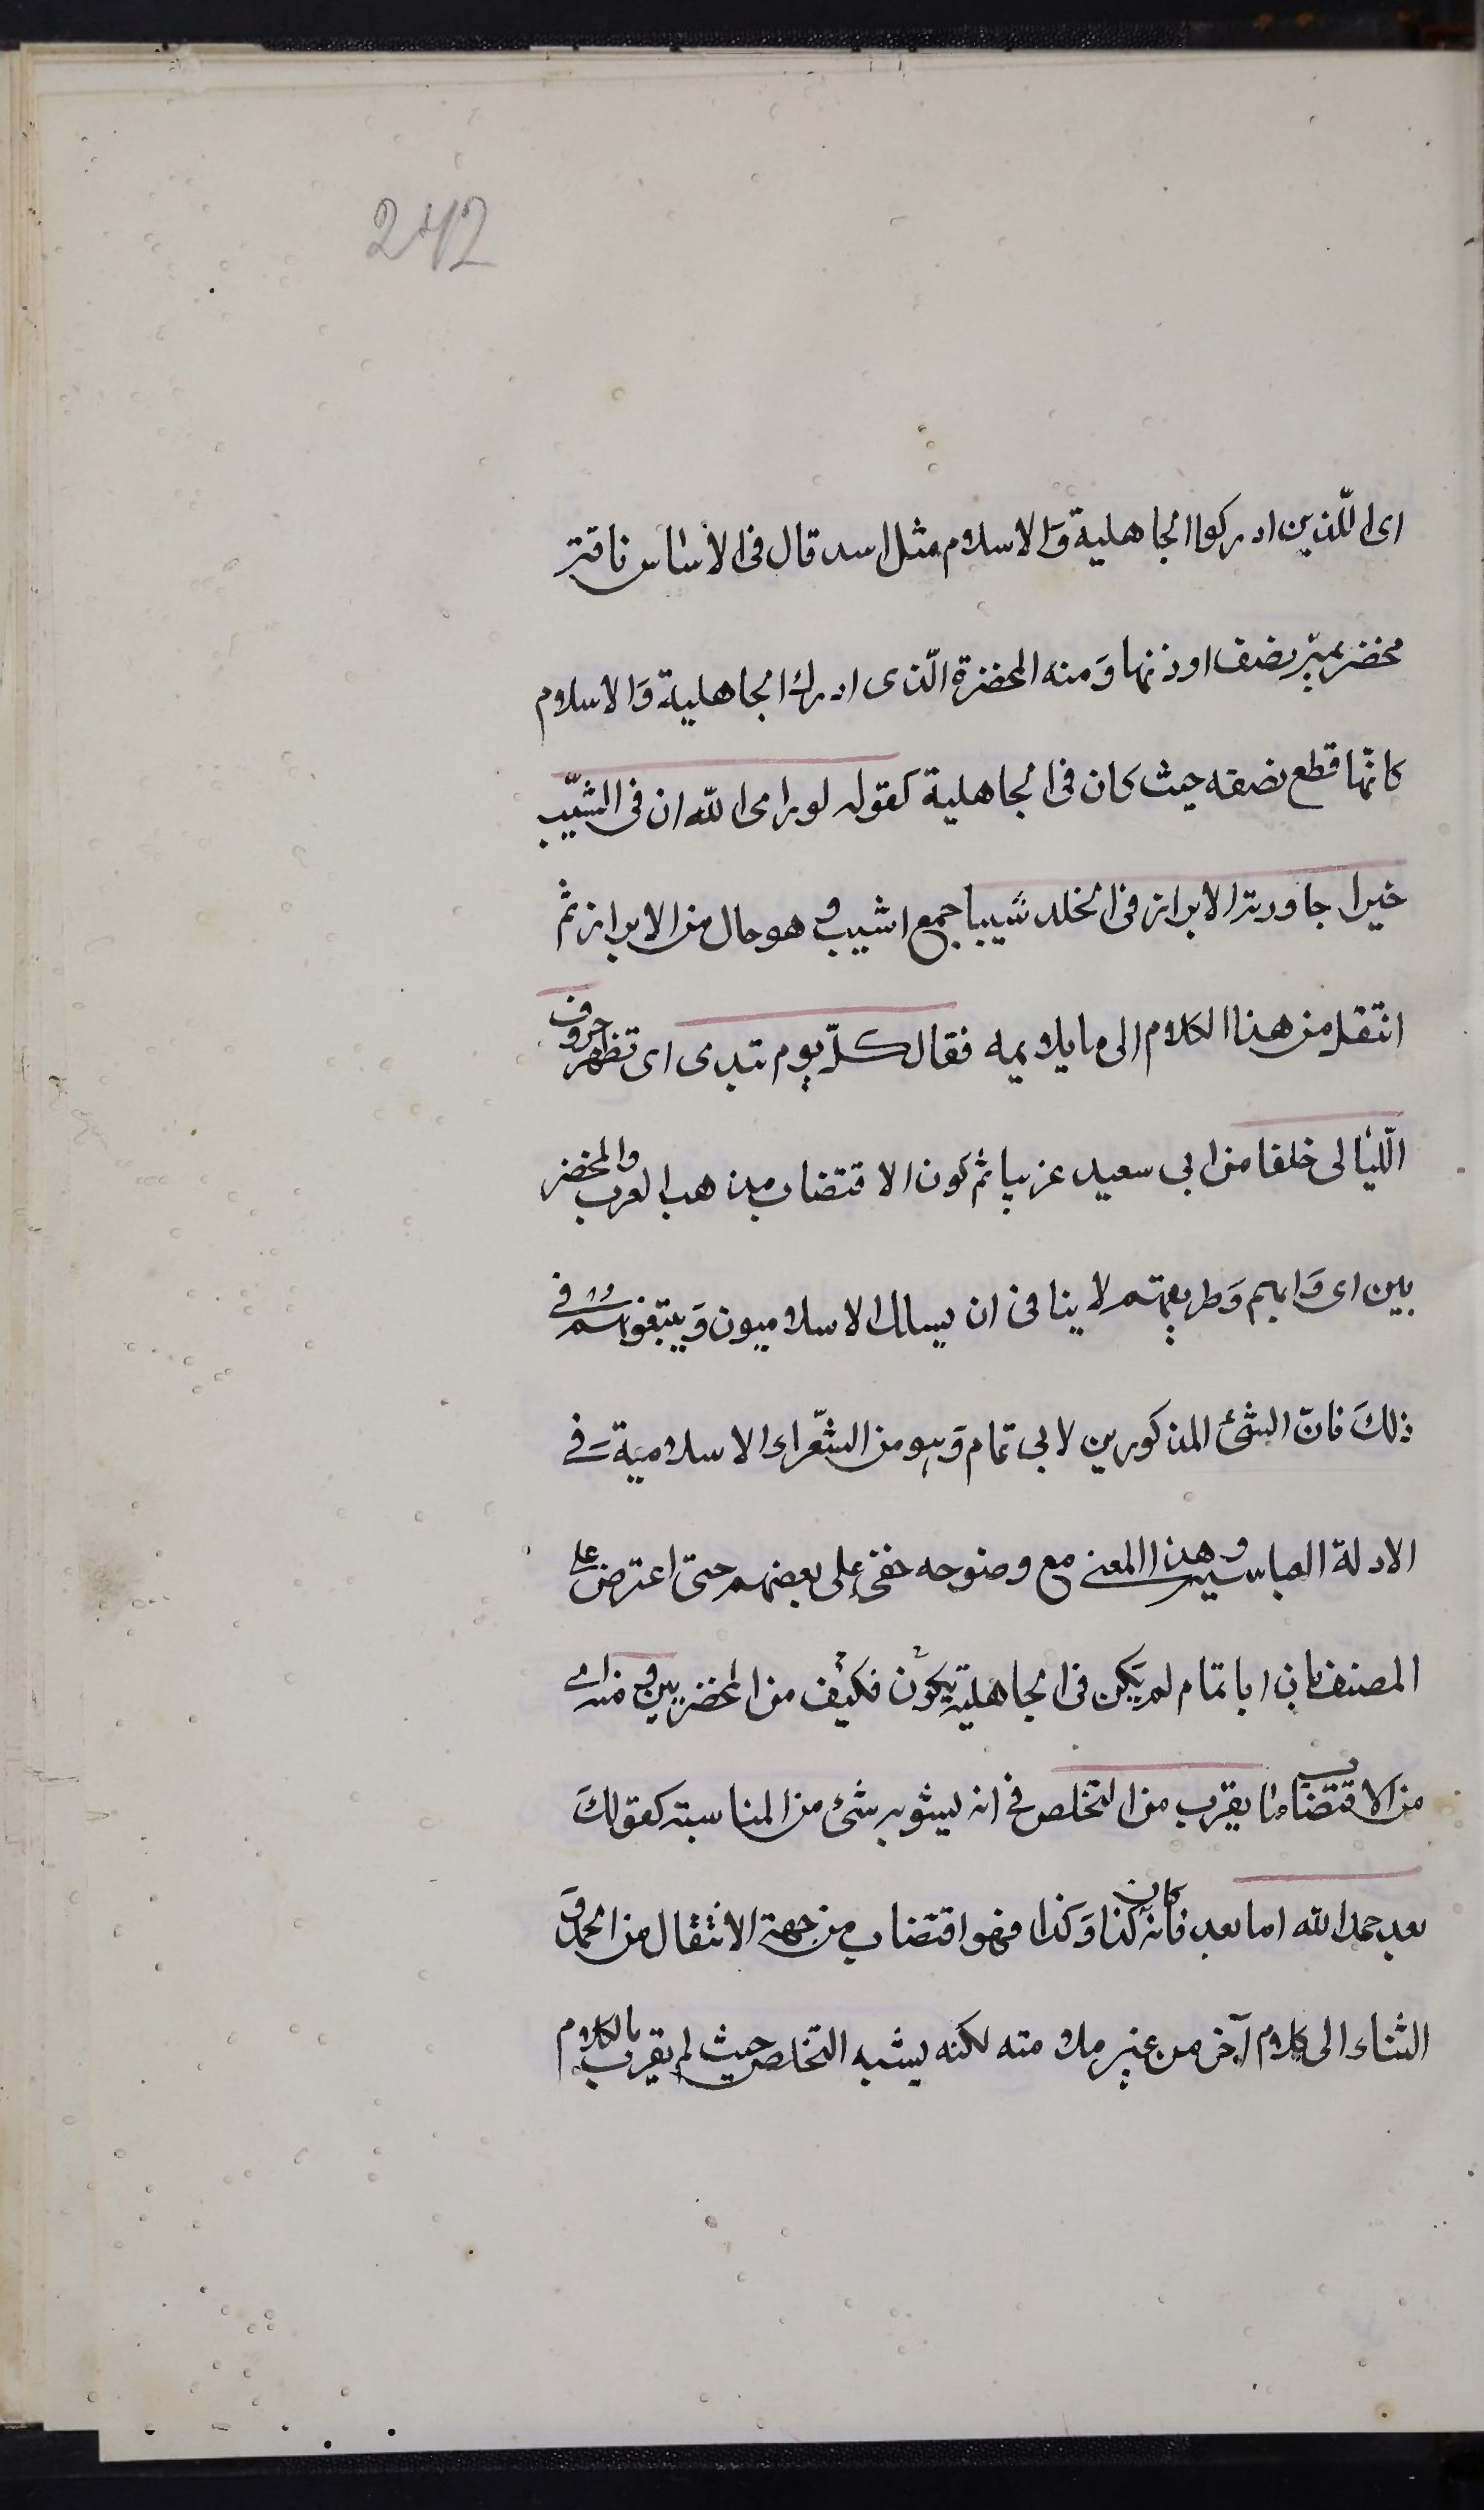 242
اى اللذين ادركوا الجاهلية وَالاسلام مثل اسد قال فى الاساس ناقتر
مخضرمير نصف اوذنها وَمنه المخضرة الّذى ادرك الجاهلية وَالاسلام
كانّها قطع نصفه حيث كان فى الجاهلية كقوله لو راى الله ان فى الشيّب
خيرا جاورته الابرار فى الخلد شيبا جمع اشيب و هو حال من الابرار ثم
انتقل من هذا الكلام الى ما يلايمه فقال كلّ يوم تبدى اى تظهر حروف
اللّيالى خلقا من ابى سعيد غريبا ثم كون الاقتضاب مذهب العرب والمخضر
بين اى وَابهم وَطريقتهم لا ينافى ان يسلك الاسلاميون وَيتبعونهم فى
ذلكَ فانّ الشئ المذكورين لابى تمام وَهو من الشّعراء الاسلامية فى
الادلة العباسيه وهذا المعنى مع وضوحه خفى على بعضهم حتى اعترض على
المصنف بان ابا تمام لم يَكن فى الجاهلية يكون فكيف من المخضربين و منه اى
من الاقتضاب ما يقرب من التخلص فى انه يشوبه شئ من المناسبة كقولكَ
بعد حمد الله اما بعد فانه كان كذا وَكذا فهو اقتضاب من جهة الانتقال من الحمد وَ
الثناء الى كلام آخر من غير ملامته لكنه يشبه التخلص حيث لم يقرب بالكلام